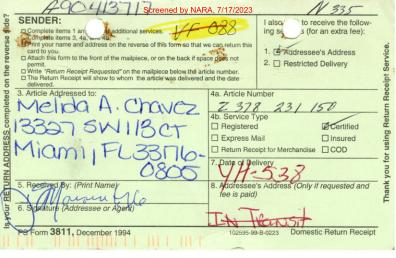 Screened by NARA, 7/17/2023
A90413717
N 335
VF 088
Is your RETURN ADDRESS completed on the reverse side?
SENDER:
Complete items 1 and additional services.
Complete items 3, 4a, and 4b.
Print your name and address on the reverse of this form so that we can return this card to you.
Attach this form to the front of the mailpiece, or on the back if space does not permit.
Write "Return Receipt Requested" on the mailpiece below the article number.
The Return Receipt will show to whom the article was delivered and the date delivered.
I also to receive the following (for an extra fee):
1. Addressee's Address
2. Restricted Delivery
3. Article Addressed to:
Melida A. Chavez
13327 SW 113 CT
Miami, FL 33176-
0805
4a. Article Number
Z 378 231 150
4b. Service Type
Registered
Certified
Express Mail
Insured
Return Receipt for Merchandise
COD
7. Date of Delivery
YH-538
5. Received By: (Print Name)
6. Signature (Addressee or Agent)
8. Addressee's Address (Only if requested and fee is paid)
In Transit
PS Form 3811, December 1994
102595-99-B-0223
Domestic Return Receipt
Thank you for using Return Receipt Service.